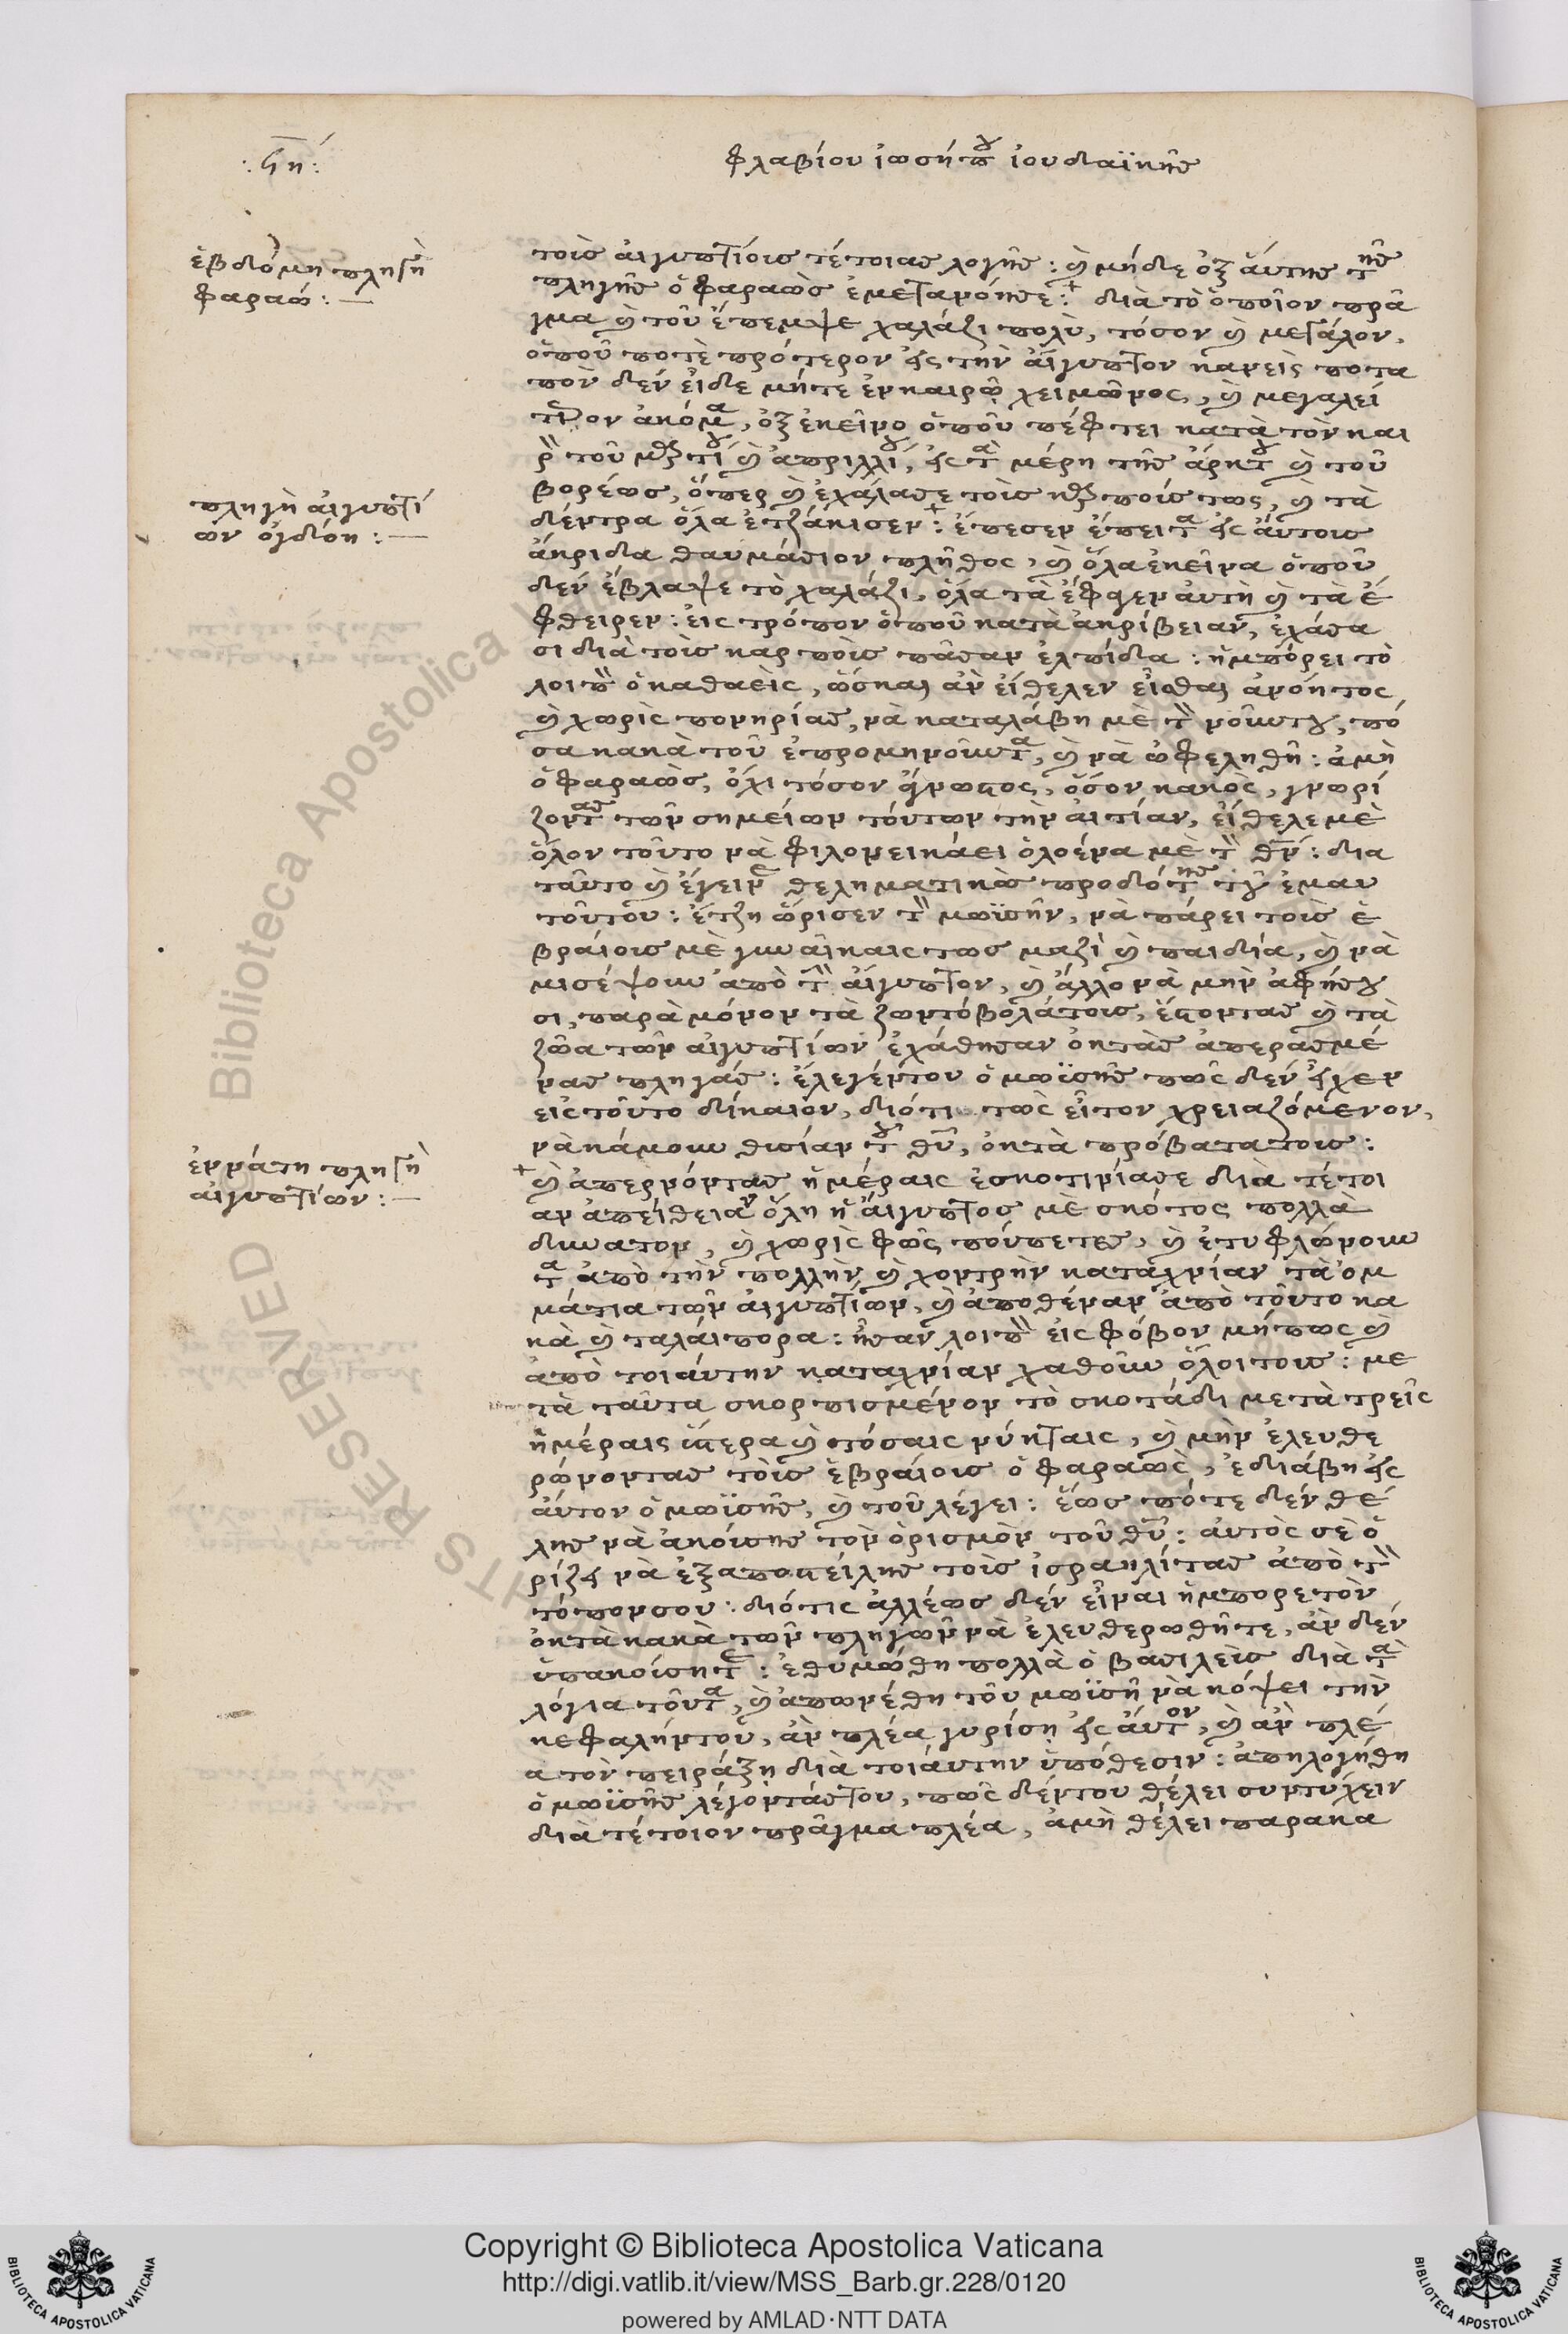 :ϟη:
φλαβίου ἰωσήπου ἰουδαϊκῆς
ἑβδόμη πληγὴ
φαραώ:—
τοὶς ἀιγυπτίοις τέτοιας λογῆς: ὴ μήδε ὀξ ἄυτης τῆς
πληγῆς ὁ φαραὼς ἐμετανόησε: διὰ τὸ ὁποῖον πρᾶ
γμα ὴ τοῦ ἔπεμψε χαλάζι πολὺ, τόσον ὴ μεγάλον,
ὁποῦ ποτὲ πρότερον εἰς τὴν ἀίγυπτον κἀνεὶς ποτα
πὸν δὲν εἶδε μήτε ἐν καιρῷ χειμῶνος, ὴ μεγαλεί
τερον ἀκόμα, ὀξ ἐκεῖνο ὁποῦ πέφτει κατὰ τὸν και
ρὸν τοῦ μαρτίου ὴ ἀπριλλίου, εἰς τὰ μέρη τῆς ἄρκτου ὴ τοῦ
βορέως, ὅπερ ὴ ἐχάλασε τοὶς καρποίς τως, ὴ τὰ
δέντρα ὅλα ἐτζάκισεν: ἔπεσεν ἔπειτα εἰς ἄυτοις
πληγὴ ἀιγυπτί
ων ὀγδόη:—
ἀκρίδα θαυμάσιον πλῆθος, ὴ ὅλα ἐκεῖνα ὁποῦ
δὲν ἔβλαψε τὸ χαλάζι, ὅλα τὰ ἔφαγεν ἀυτὴ ὴ τὰ ἔ
φθειρεν: εἰς τρόπον ὁποῦ κατὰ ἀκρίβειαν, ἐχάσα
σι διὰ τοὶς καρποὶς πᾶσαν ἐλπίδα: ἠμπόρει τὸ
λοιπὸν ὁ καθαεὶς, ὥσκαι ἂν εἴθελεν εἶσθαι ἀνόητος
ὴ χωρὶς πονηρίας, νὰ καταλάβη μὲ τὸν νοῦν του, πό
σα κακὰ τοῦ ἐπρομηνοῦντα, ὴ νὰ ὠφεληθῆ: ἀμὴ
ὁ φαραὼς, ὄχι τόσον ἄγνωστος, ὅσον κακὸς, γνωρί
ζοντας τῶν σημείων τόυτων τὴν ἀιτίαν, εἴθελε μὲ
ὅλον τοῦτο νὰ φιλονεικάει ὁλοένα μὲ τὸν θν: δια
ταῦτο ὴ ἔγεινε θεληματικῶς προδότης τοῦ ἐμαυ
τοῦτου: ἔτζη ὥρισεν τὸν μωϊσῆν, νὰ πάρει τοὶς ἑ
βραίοις μὲ γυναῖκαις τως μαζὶ ὴ παιδία, ὴ νὰ
μισέψουν ἀπὸ τὴν ἀίγυπτον, ὴ ἄλλο νὰ μὴν ἀφήσου
σι, παρὰ μόνον τὰ ζωντόβολάτοις, ἔστοντας ὴ τὰ
ζῶα τῶν ἀιγυπτίων ἐχάθησαν ὀκ τὰς ἀπερασμέ
νας πληγάς: ἔλεγέντου ὁ μωϊσῆς πῶς δὲν ἔχεν
εἰς τοῦτο δίκαιον, διότι τὼς εἶτον χρειαζόμενον,
νὰ κάμουν θισίαν τοῦ θῦ, ὀκ τὰ πρόβατα τοις:
ἐννάτη πληγὴ
ἀιγυπτίων:—
ὴ ἀπερνόντας ἡμέραις ἐσκοτινίασε διὰ τέτοι
αν ἀπείθειαν ὅλη ἡ ἄιγυπτος μὲ σκότος πολλὰ
δυνατον, ὴ χωρὶς φῶς πούπετες, ὴ ἐτυφλώνουν
τα ἀπὸ τὴν πολλὴν ὴ χοντρὴν καταχνίαν τὰ ὀμ
μάτια τῶν ἀιγυπτίων, ὴ ἀποθέναν ἀπὸ τοῦτο κα
κὰ ὴ ταλάιπορα: ἦσαν λοιπὸν εἰς φόβον μήπως ὴ
ἀπὸ τοιάυτην καταχνίαν χαθοῦν ὅλοιτοις: με
τὰ ταῦτα σκορπισμένον τὸ σκοτάδι μετὰ τρεῖς
ἡμέραις ὕστερα ὴ τόσαις νύκταις, ὴ μὴν ἐλευθε
ρώνοντας τοὶς ἑβραίοις ὁ φαραὼς, ἐδιάβη εἰς
ἀυτον ὁ μωϊσῆς, ὴ τοῦ λέγει: ἕως πότε δὲν θέ
λης νὰ ἀκόυσης τὸν ὁρισμὸν τοῦ θῦ: ἀυτὸς σὲ ὁ
ρίζει νὰ ἐξαποστείλης τοὶς ἰσραηλίτας ἀπὸ τὸν
τόπονσου: διότις ἀλλέως δὲν εἶναι ἠμπορετὸν
ὀκ τὰ κακὰ τῶν πληγῶν νὰ ἐλευθερωθῆτε, ἂν δὲν
ὑπακοίσητε: ἐθυμώθη πολλὰ ὁ βασιλεὶς διὰ τὰ
λόγια τοῦτα, ὴ ἀπωνέθη τοῦ μωϊσῆ νὰ κόψει τὴν
κεφαλήντου, ἂν πλέα γυρίση εἰς ἀυτον, ὴ ἂν πλέ
α τὸν πειράξη διὰ τοιάυτην ὑπόθεσιν: ἀπηλογήθη
ὁ μωϊσῆς λέγοντάςτου, πῶς δέντου θέλει συντύχειν
διὰ τέτοιον πρᾶγμα πλέα, ἀμὴ θέλει παρακα
Copyright © Biblioteca Apostolica Vaticana
http://digi.vatlib.it/view/MSS_Barb.gr.228/0120
powered by AMLAD·NTT DATA